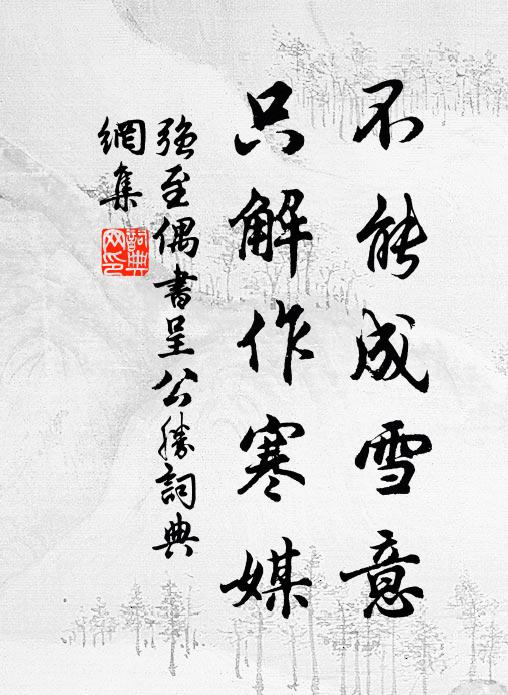 不能成雪意
只解作寒媒
强至偶書呈公勝詞典
網集
詞典網印